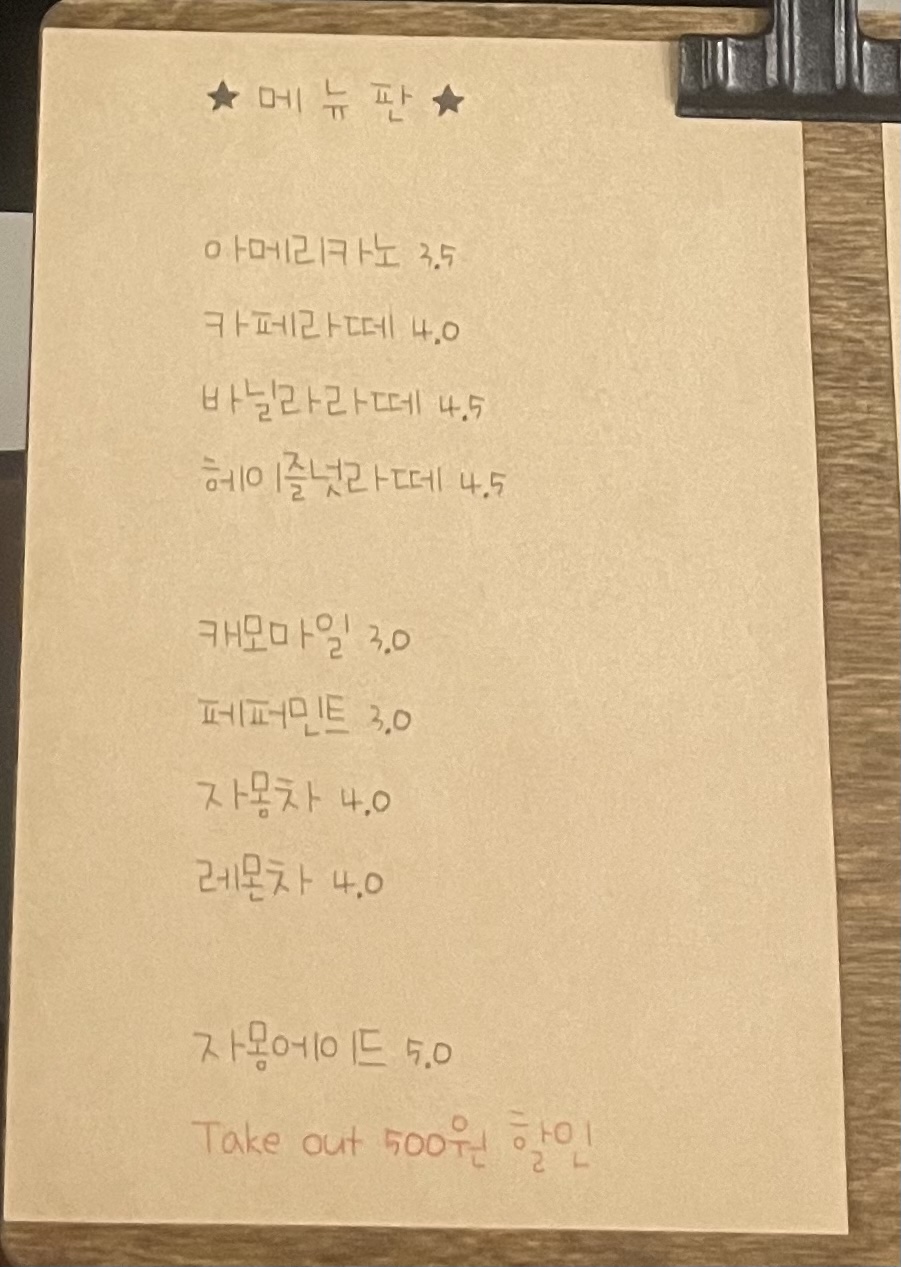 ★ 메뉴판 ★
아메리카노 3.5
카페라떼 4.0
바닐라라떼 4.5
헤이즐넛라떼 4.5
캐모마일 3.0
페퍼민트 3.0
자몽차 4.0
레몬차 4.0
자몽에이드 5.0
Take out 500원 할인